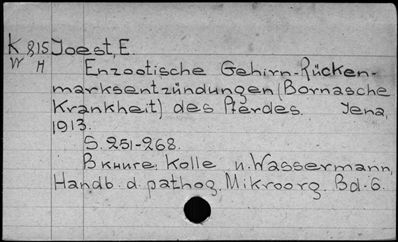 K 815 Joest, E.
W H
Enzootische Gehirn-Rücken-
marksentzündungen (Bornasche
Krankheit) des Pferdes. Jena,
1913.
S. 251-268.
В книге: Kolle u. Wassermann,
Handb. d. pathog. Mikroorg. Bd. 6.